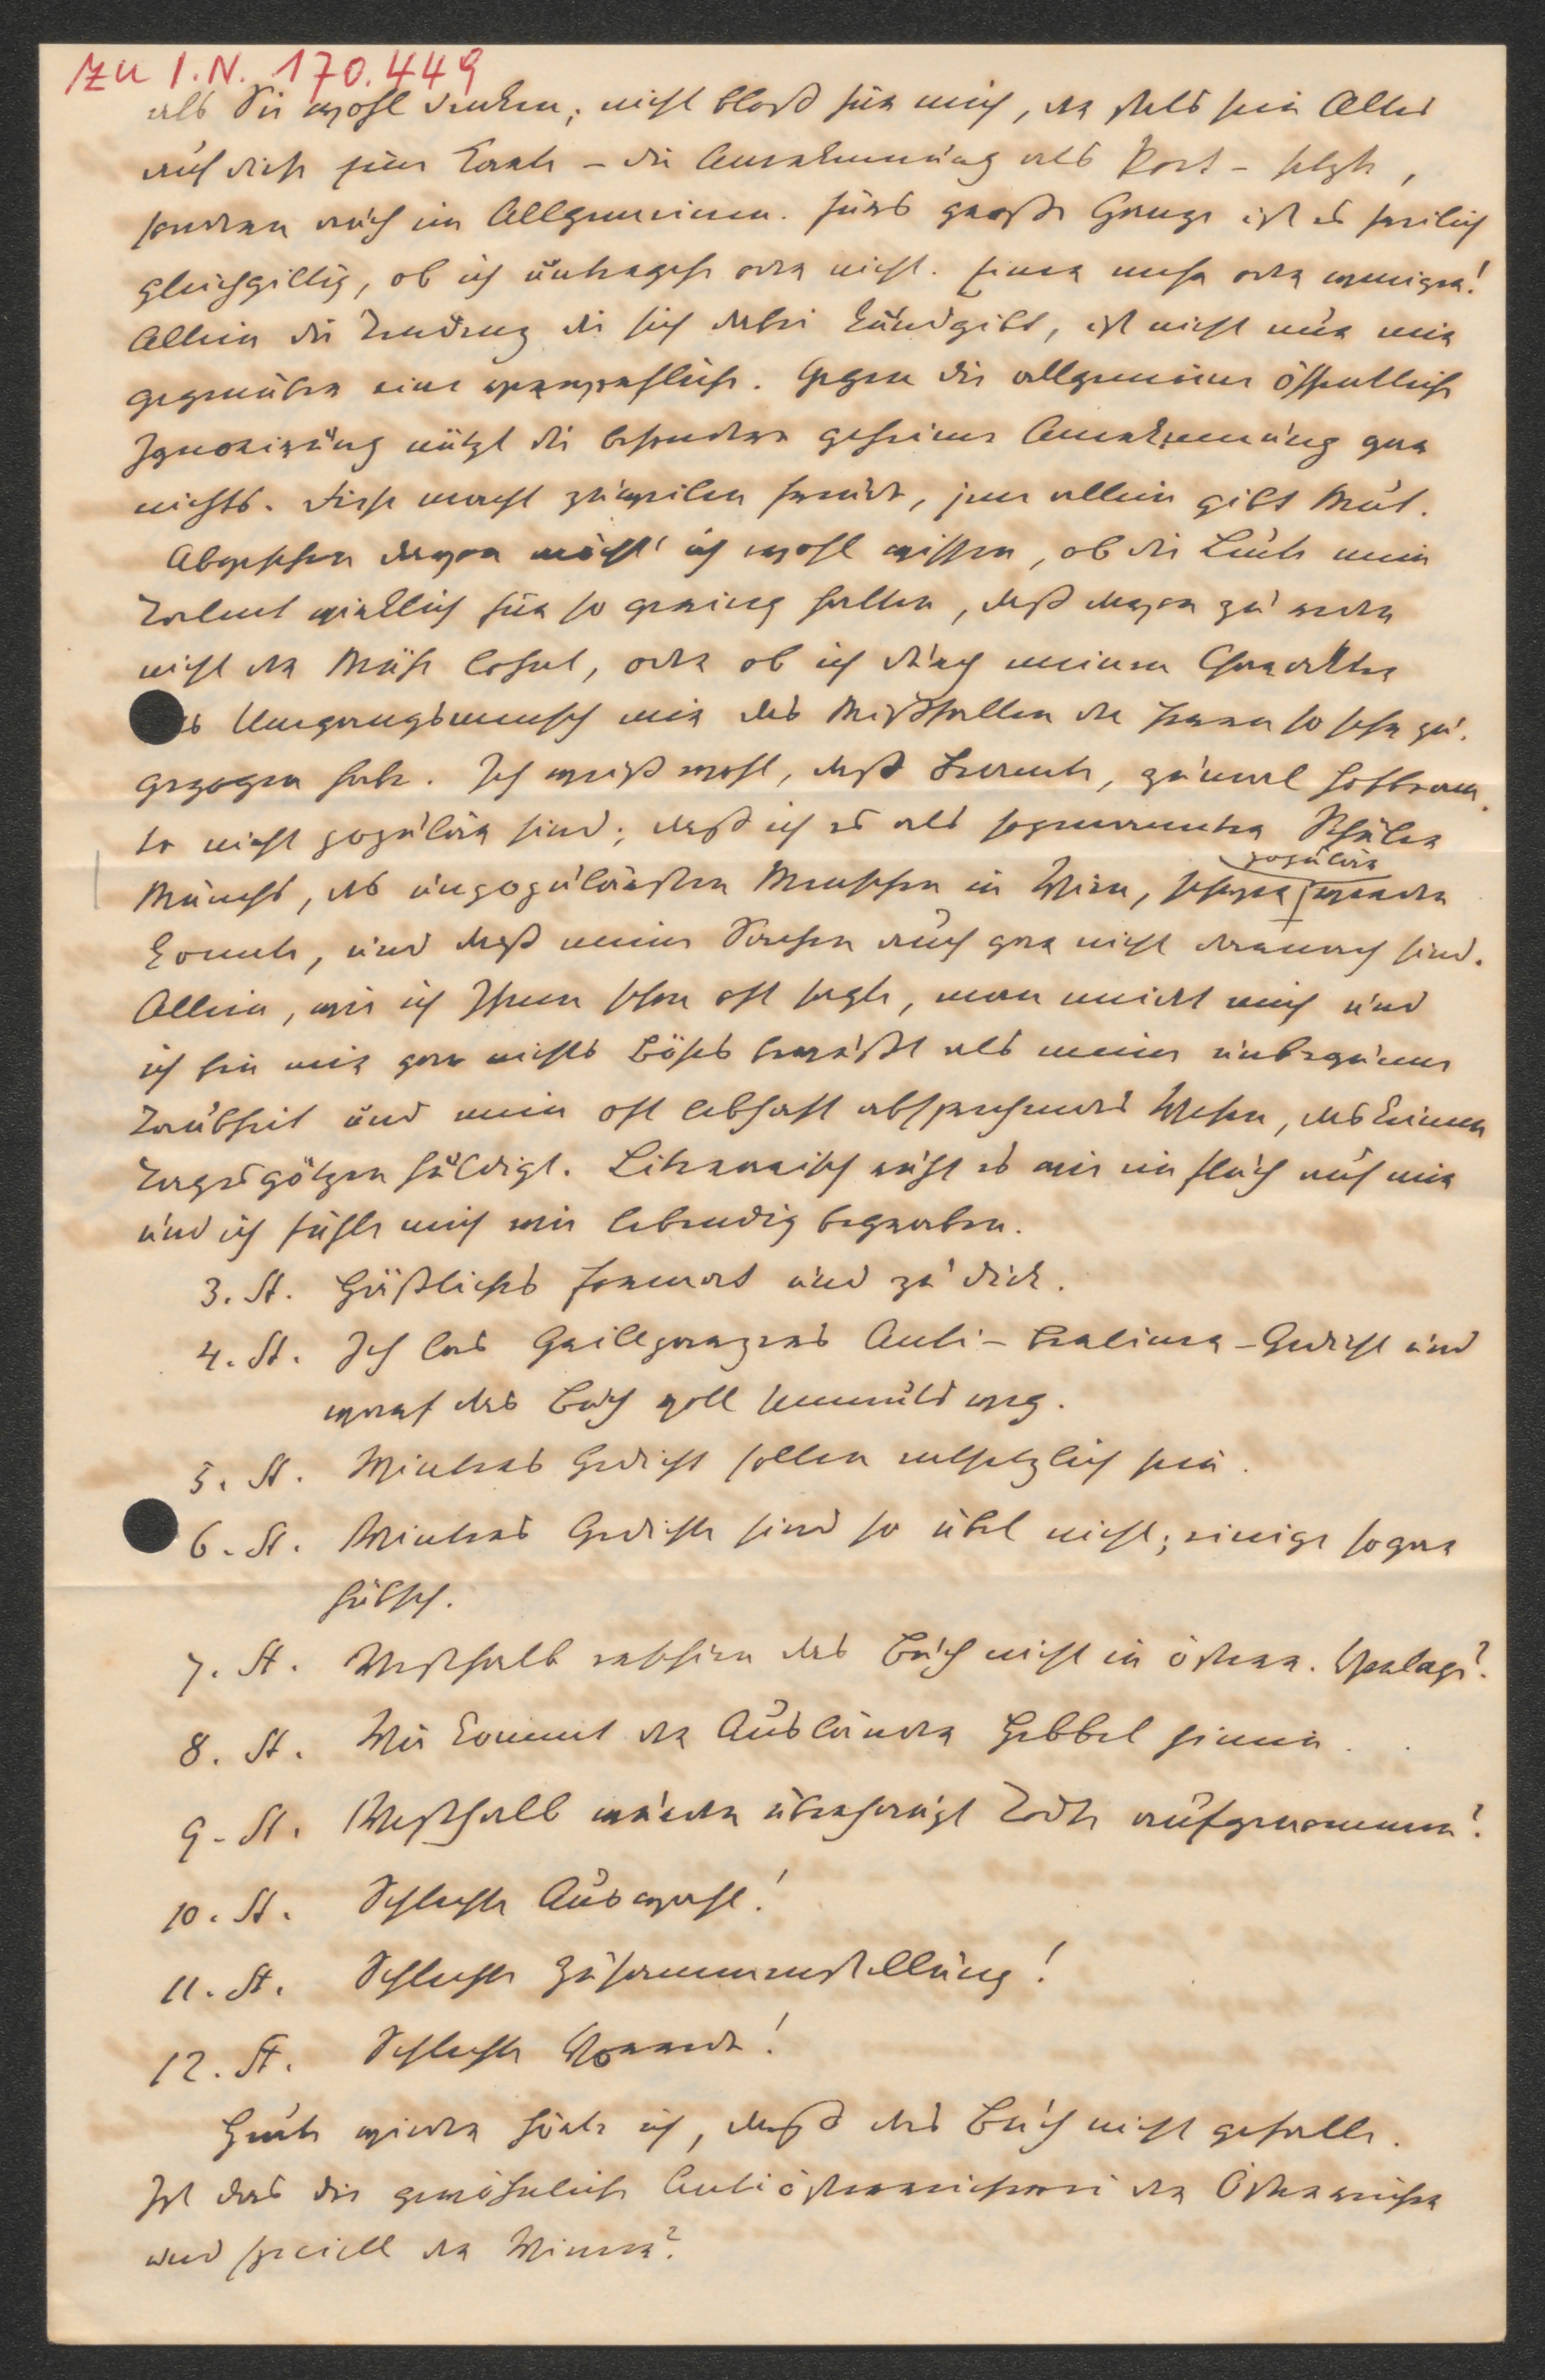 zu I.N. 170.449
als Sie wohl denken; nicht bloß für mich, der stets sein Alles
auf diese eine Karte – die Anerkennung als Poet – setzte,
sondern auch im Allgemeinen. Fürs große Ganze ist es freilich
gleichgiltig, ob ich untergehe oder nicht. Einer mehr oder weniger!
Allein die Tendenz die sich dabei kundgibt, ist nicht nur mir
gegenüber eine verwerfliche. Gegen die allgemeine öffentliche
Ignorirung nützt die besondere geheime Anerkennung gar
nichts. Diese macht zuweilen Freude, jene allein gibt Mut.
Abgesehen davon möcht' ich wohl wissen, ob die Leute mein
Talent wirklich für so gering halten, daß davon zu reden
nicht der Mühe lohnt, oder ob ich durch meinen Charakter
als Umgangsmensch mir das Mißfallen der Herren so sehr zu-
gezogen habe. Ich weiß wohl, daß Beamte, zumal Hofbeam-
te nicht populär sind; daß ich es als sogenannter Schüler
Münchs, des unpopulärsten Menschen in Wien, schwer populär werden
konnte, und daß meine Sachen auch gar nicht darnach sind.
Allein, wie ich Ihnen schon oft sagte, man meidet mich und
ich bin mir gar nichts Böses bewußt als meine unbequeme
Taubheit und mein oft lebhaft absprechendes Wesen, das keinem
Tagesgötzen huldigt. Literarisch ruht es wie ein Fluch auf mir
und ich fühle mich wie lebendig begraben.
3. St. Häßliches Format und zu dick.
4. St. Ich las Grillparzers Anti-Berliner-Gedicht und
warf das Buch voll Unmuts weg.
5. St. Winters Gedichte sollen entsetzlich sein.
6. St. Winters Gedichte sind so übel nicht; einige sogar
hübsch.
7. St. Weshalb erschien das Buch nicht in österr. Verlage?
8. St. Wie kommt der Ausländer Hebbel hinein.
9. St. Weshalb wurden überhaupt Todte aufgenommen?
10. St. Schlechte Auswahl!
11. St. Schlechte Zusammenstellung!
12. St. Schlechte Vorrede!
Heute wieder hörte ich, daß das Buch nicht gefalle.
Ist das die gewöhnliche Antiösterreicherei der Österreicher
und speciell der Wiener?